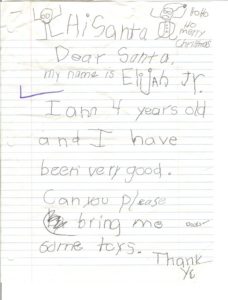 Hi Santa
HoHo
Ho
merry
Christmas
Dear Santa,
my name is Elijah Jr.
I am 4 years old
and I have
been very good.
Can you please
bring me
some toys.
Thank